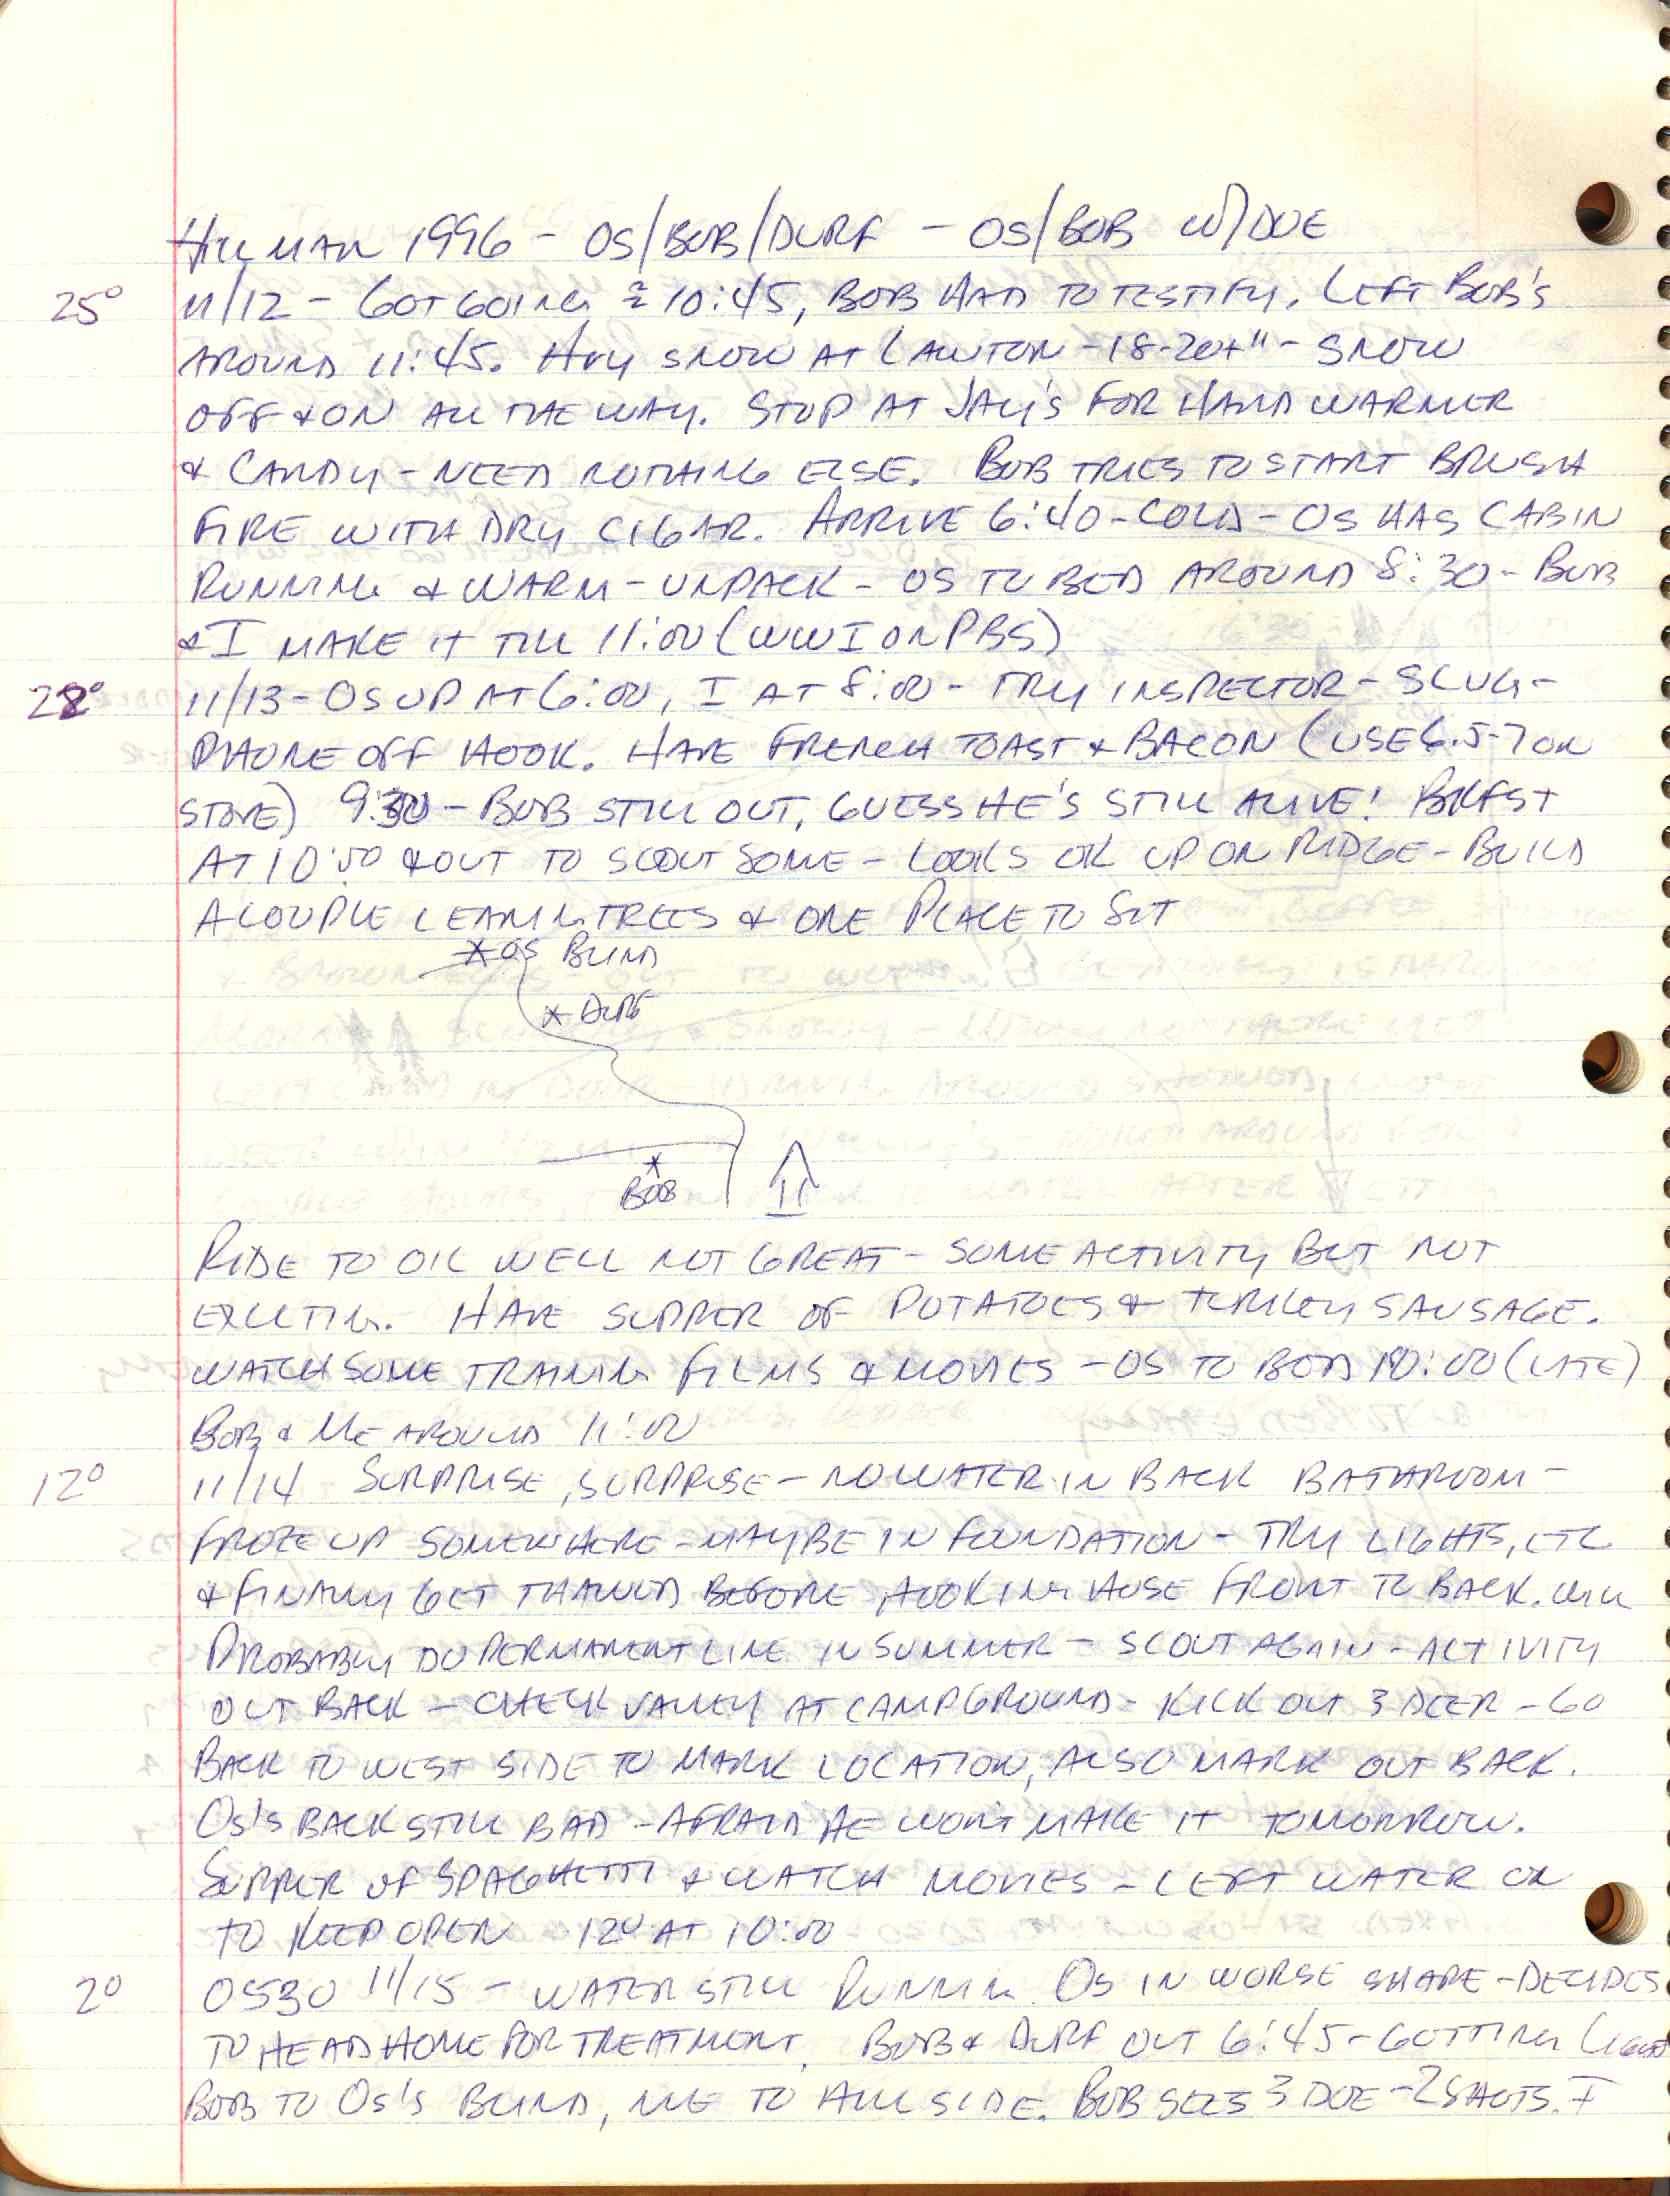 HILLMAN 1996 - OS/BOB/DURF - OS/BOB W/DOE
25° 11/12 - GOT GOING ≈ 10:45, BOB HAD TO TESTIFY, LEFT BOB'S
AROUND 11:45. HVY SNOW AT LAWTON - 18-20+" - SNOW
OFF & ON ALL THE WAY. STOP AT JAY'S FOR HAND WARMER
& CANDY - NEED NOTHING ELSE. BOB TRIES TO START BRUSH
FIRE WITH DRY CIGAR. ARRIVE 6:40 - COLD - OS HAS CABIN
RUNNING & WARM - UNPACK - OS TO BED AROUND 8:30 - BOB
& I MAKE IT TILL 11:00 (WWI ON PBS)
28° 11/13 - OS UP AT 6:00, I AT 8:00 - TRY INSPECTOR - SLUG -
PHONE OFF HOOK. HAVE FRENCH TOAST & BACON (USE 6.5-7 ON
STOVE) 9:30 - BOB STILL OUT, GUESS HE'S STILL ALIVE! BKFST
AT 10:00 & OUT TO SCOUT SOME - LOOKS OK UP ON RIDGE - BUILD
A COUPLE LEANING TREES & ONE PLACE TO SIT
OS BLIND
DURF
BOB
RIDE TO OIL WELL NOT GREAT - SOME ACTIVITY BUT NOT
EXCITING. HAVE SUPPER OF POTATOES & TURKEY SAUSAGE.
WATCH SOME TRAINING FILMS & MOVIES - OS TO BED 10:00 (LATE)
BOB & ME AROUND 11:00
12° 11/14 SURPRISE, SURPRISE - NO WATER IN BACK BATHROOM -
FROZE UP SOMEWHERE - MAYBE IN FOUNDATION - TRY LIGHTS, ETC
& FINALLY GET THAWED BEFORE HOOKING HOSE FRONT TO BACK. WILL
PROBABLY DO PERMANENT LINE IN SUMMER - SCOUT AGAIN - ACTIVITY
OUT BACK - CHECK VALLEY AT CAMPGROUND - KICK OUT 3 DEER - GO
BACK TO WEST SIDE TO MARK LOCATION, ALSO MARK OUT BACK.
OS'S BACK STILL BAD - AFRAID HE WON'T MAKE IT TOMORROW.
SUPPER OF SPAGHETTI & WATCH MOVIES - LEFT WATER ON
TO KEEP OPEN 12° AT 10:00
2° 0530 11/15 - WATER STILL RUNNING. OS IN WORSE SHAPE - DECIDES
TO HEAD HOME FOR TREATMENT. BOB & DURF OUT 6:45 - GETTING LIGHT
BOB TO OS'S BLIND, ME TO HILLSIDE. BOB SEES 3 DOE - 2 SHOTS. I